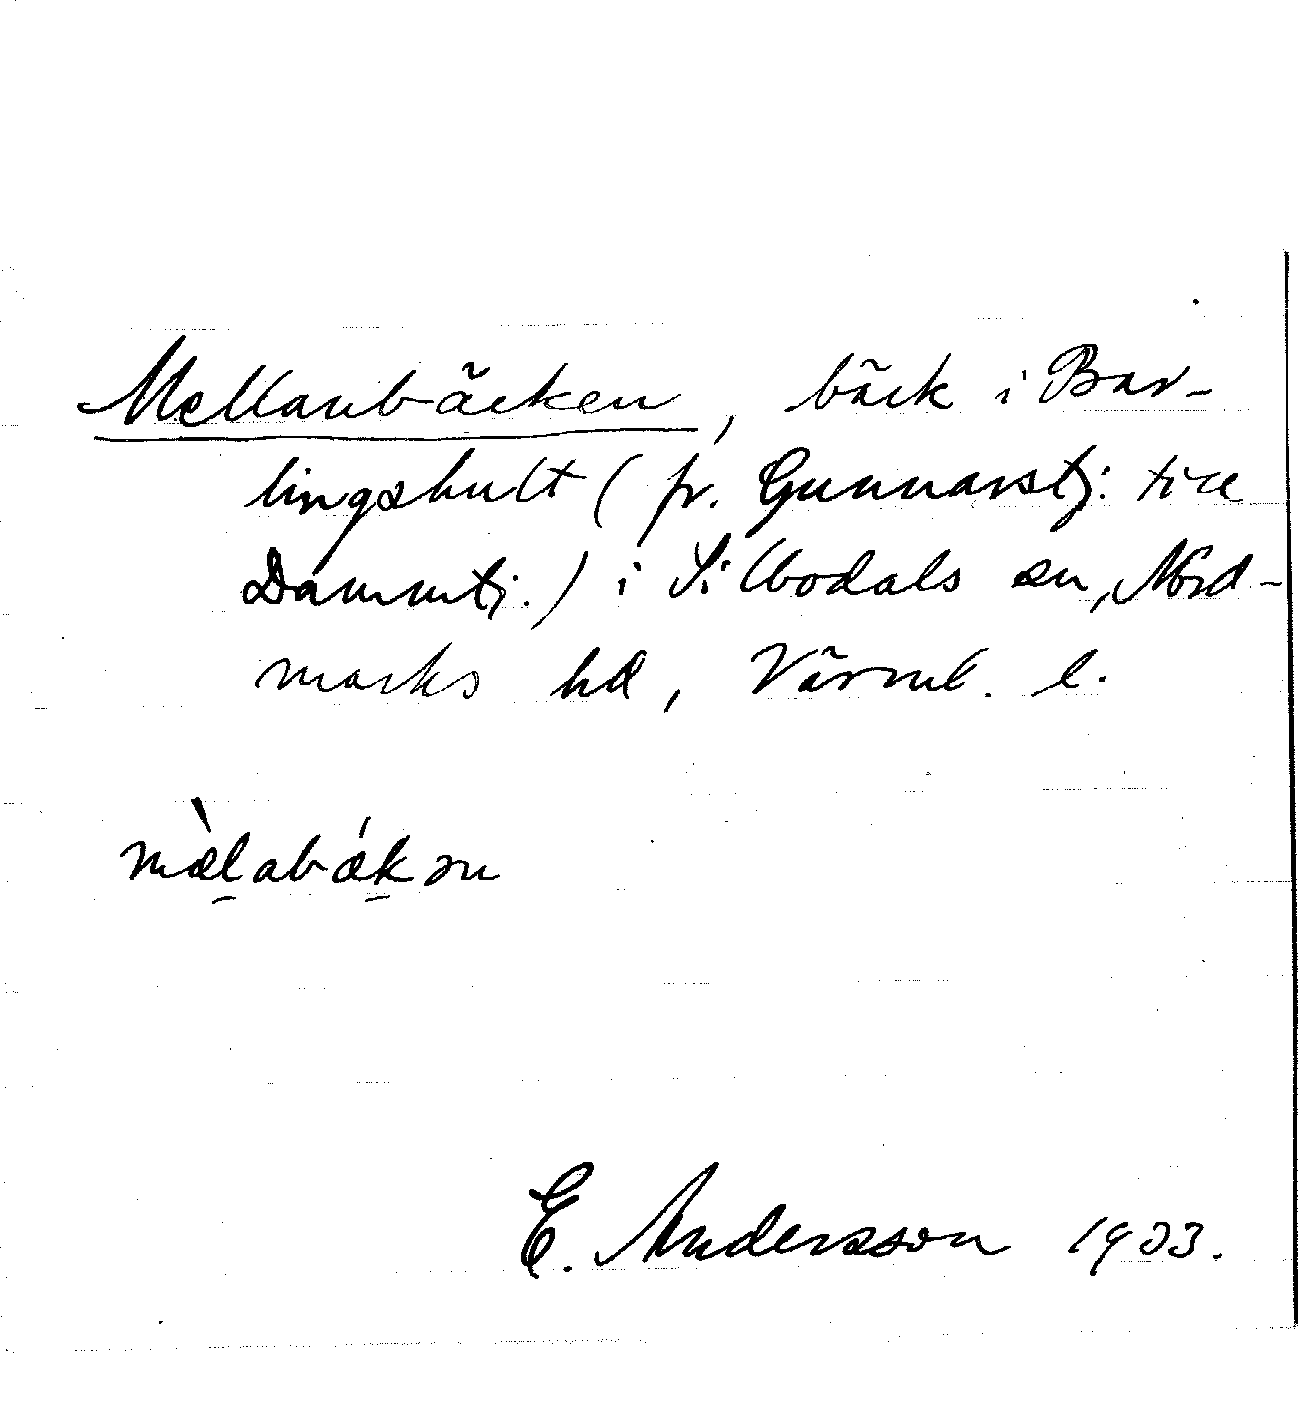 Mellanbäcken, bäck i Bar-
lingshult (fr. Gunnarstj. till
Dammtj.) i Silbodals sn, Nord-
marks hd, Värml. l.
mæ̀labǽkən
E. Andersson 1933.